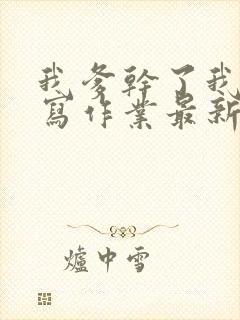 我爹幹了我
寫作業最新
爐中雪